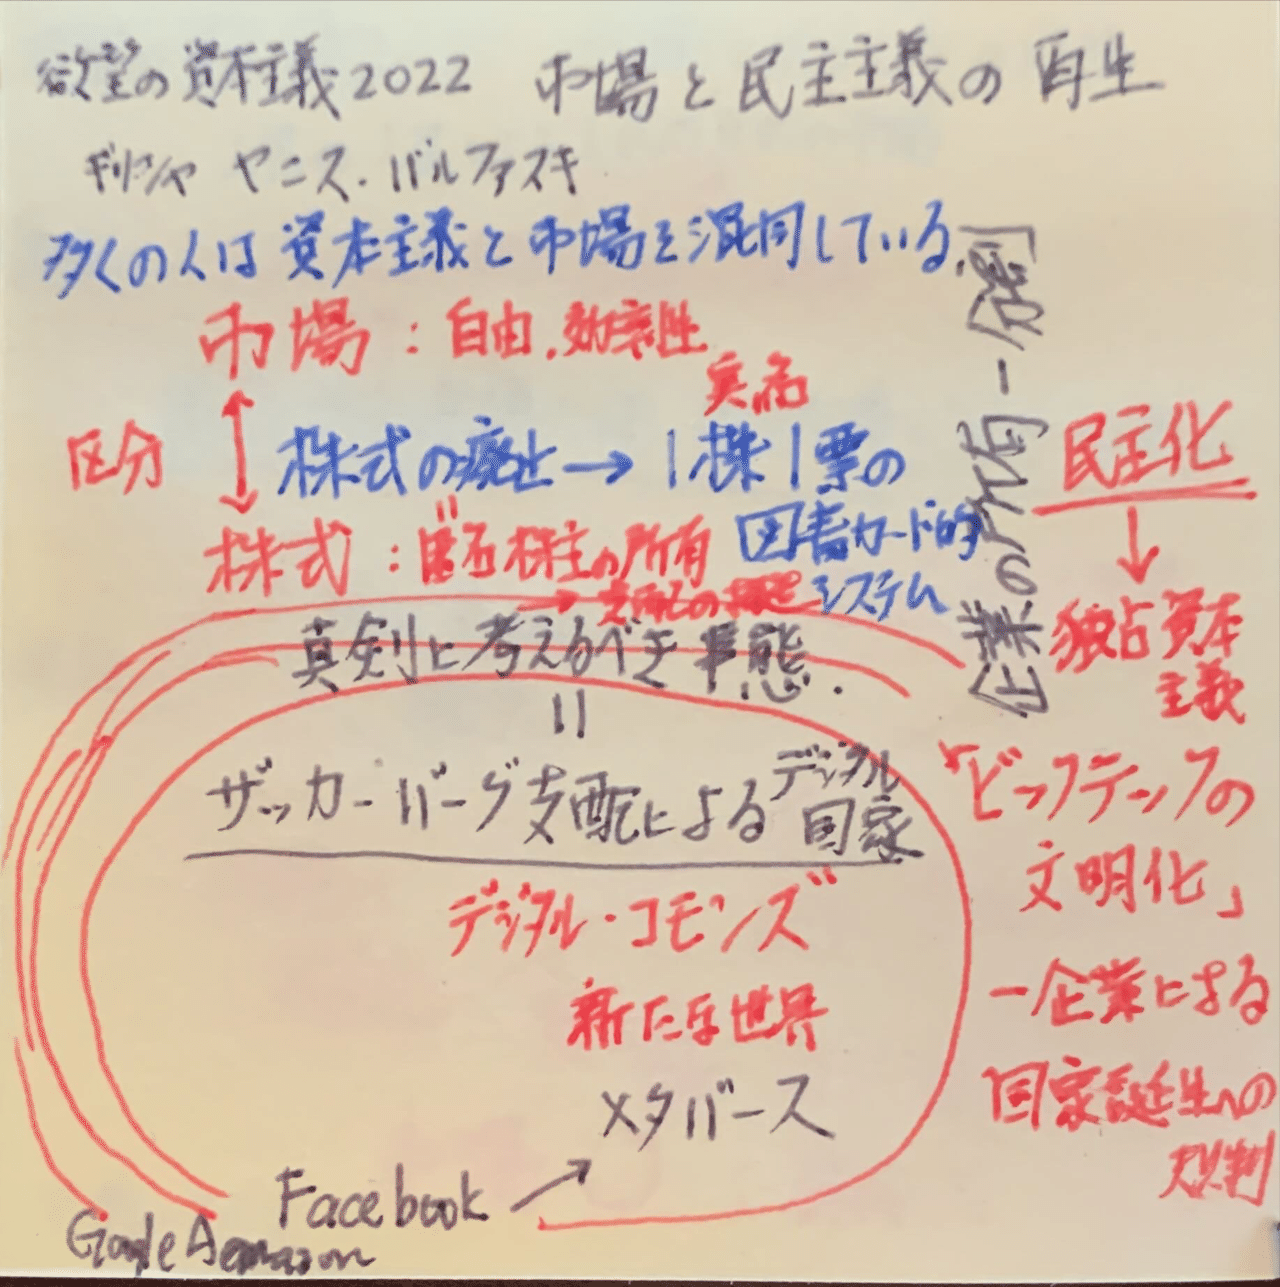 欲望の資本主義2022 市場と民主主義の再生
ギリシャ ヤニス・バルファスキ
多くの人は資本主義と市場を混同している
市場：自由、効率性
実例
区分
株式の廃止→1株1票の
図書カード的
システム
株式：匿名株主の所有
→支配の
企業の所有
民主化
↓
独占資本
主義
真剣に考えるべき事態.
=
ザッカーバーグ支配によるデジタル
国家
デジタル・コモンズ"
新たな世界
メタバース
Facebook
Google
Aemazon
「ビックテックの
文明化」
一企業による
国家誕生への
批判